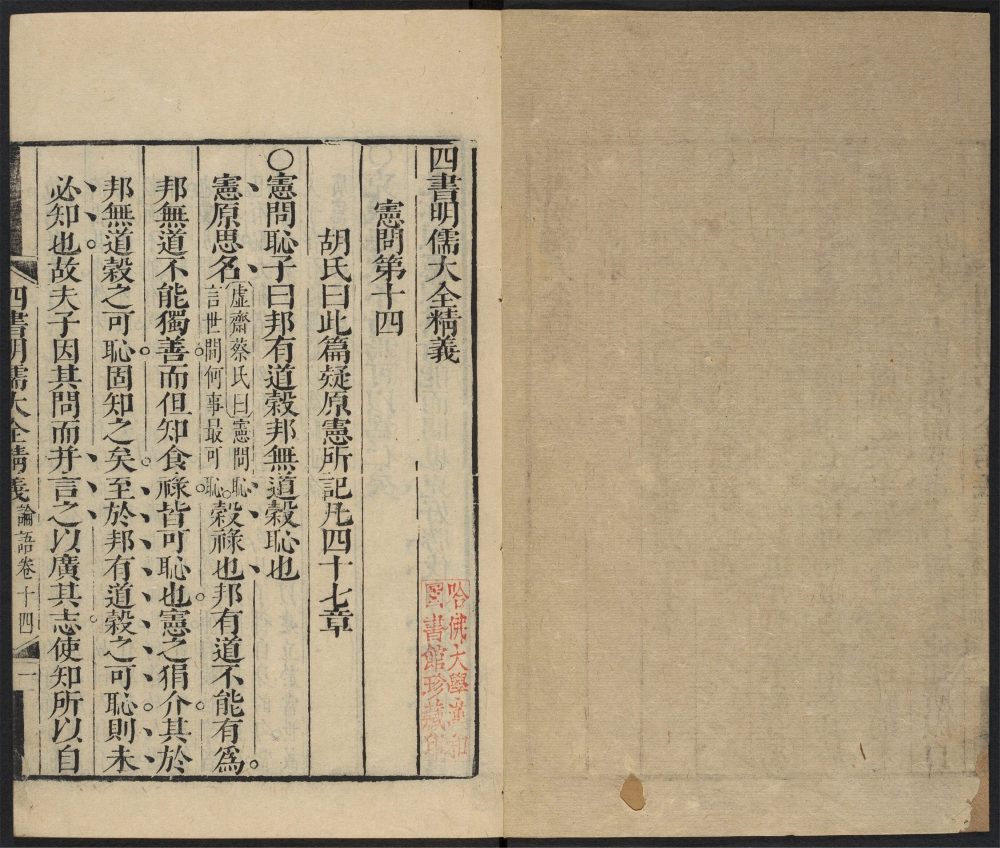 四書明儒大全精義
憲問第十四
胡氏曰此篇疑原憲所記凡四十七章
○憲問恥子曰邦有道穀邦無道穀恥也
憲原思名虛齋蔡氏曰憲問恥言世間何事最可恥穀祿也邦有道不能有為
邦無道不能獨善而但知食祿皆可恥也憲之狷介其於
邦無道穀之可恥固知之矣至於邦有道穀之可恥則未
必知也故夫子因其問而并言之以廣其志使知所以自
四書明儒大全精義 論語卷十四 一
哈佛大學漢和
圖書館珍藏印